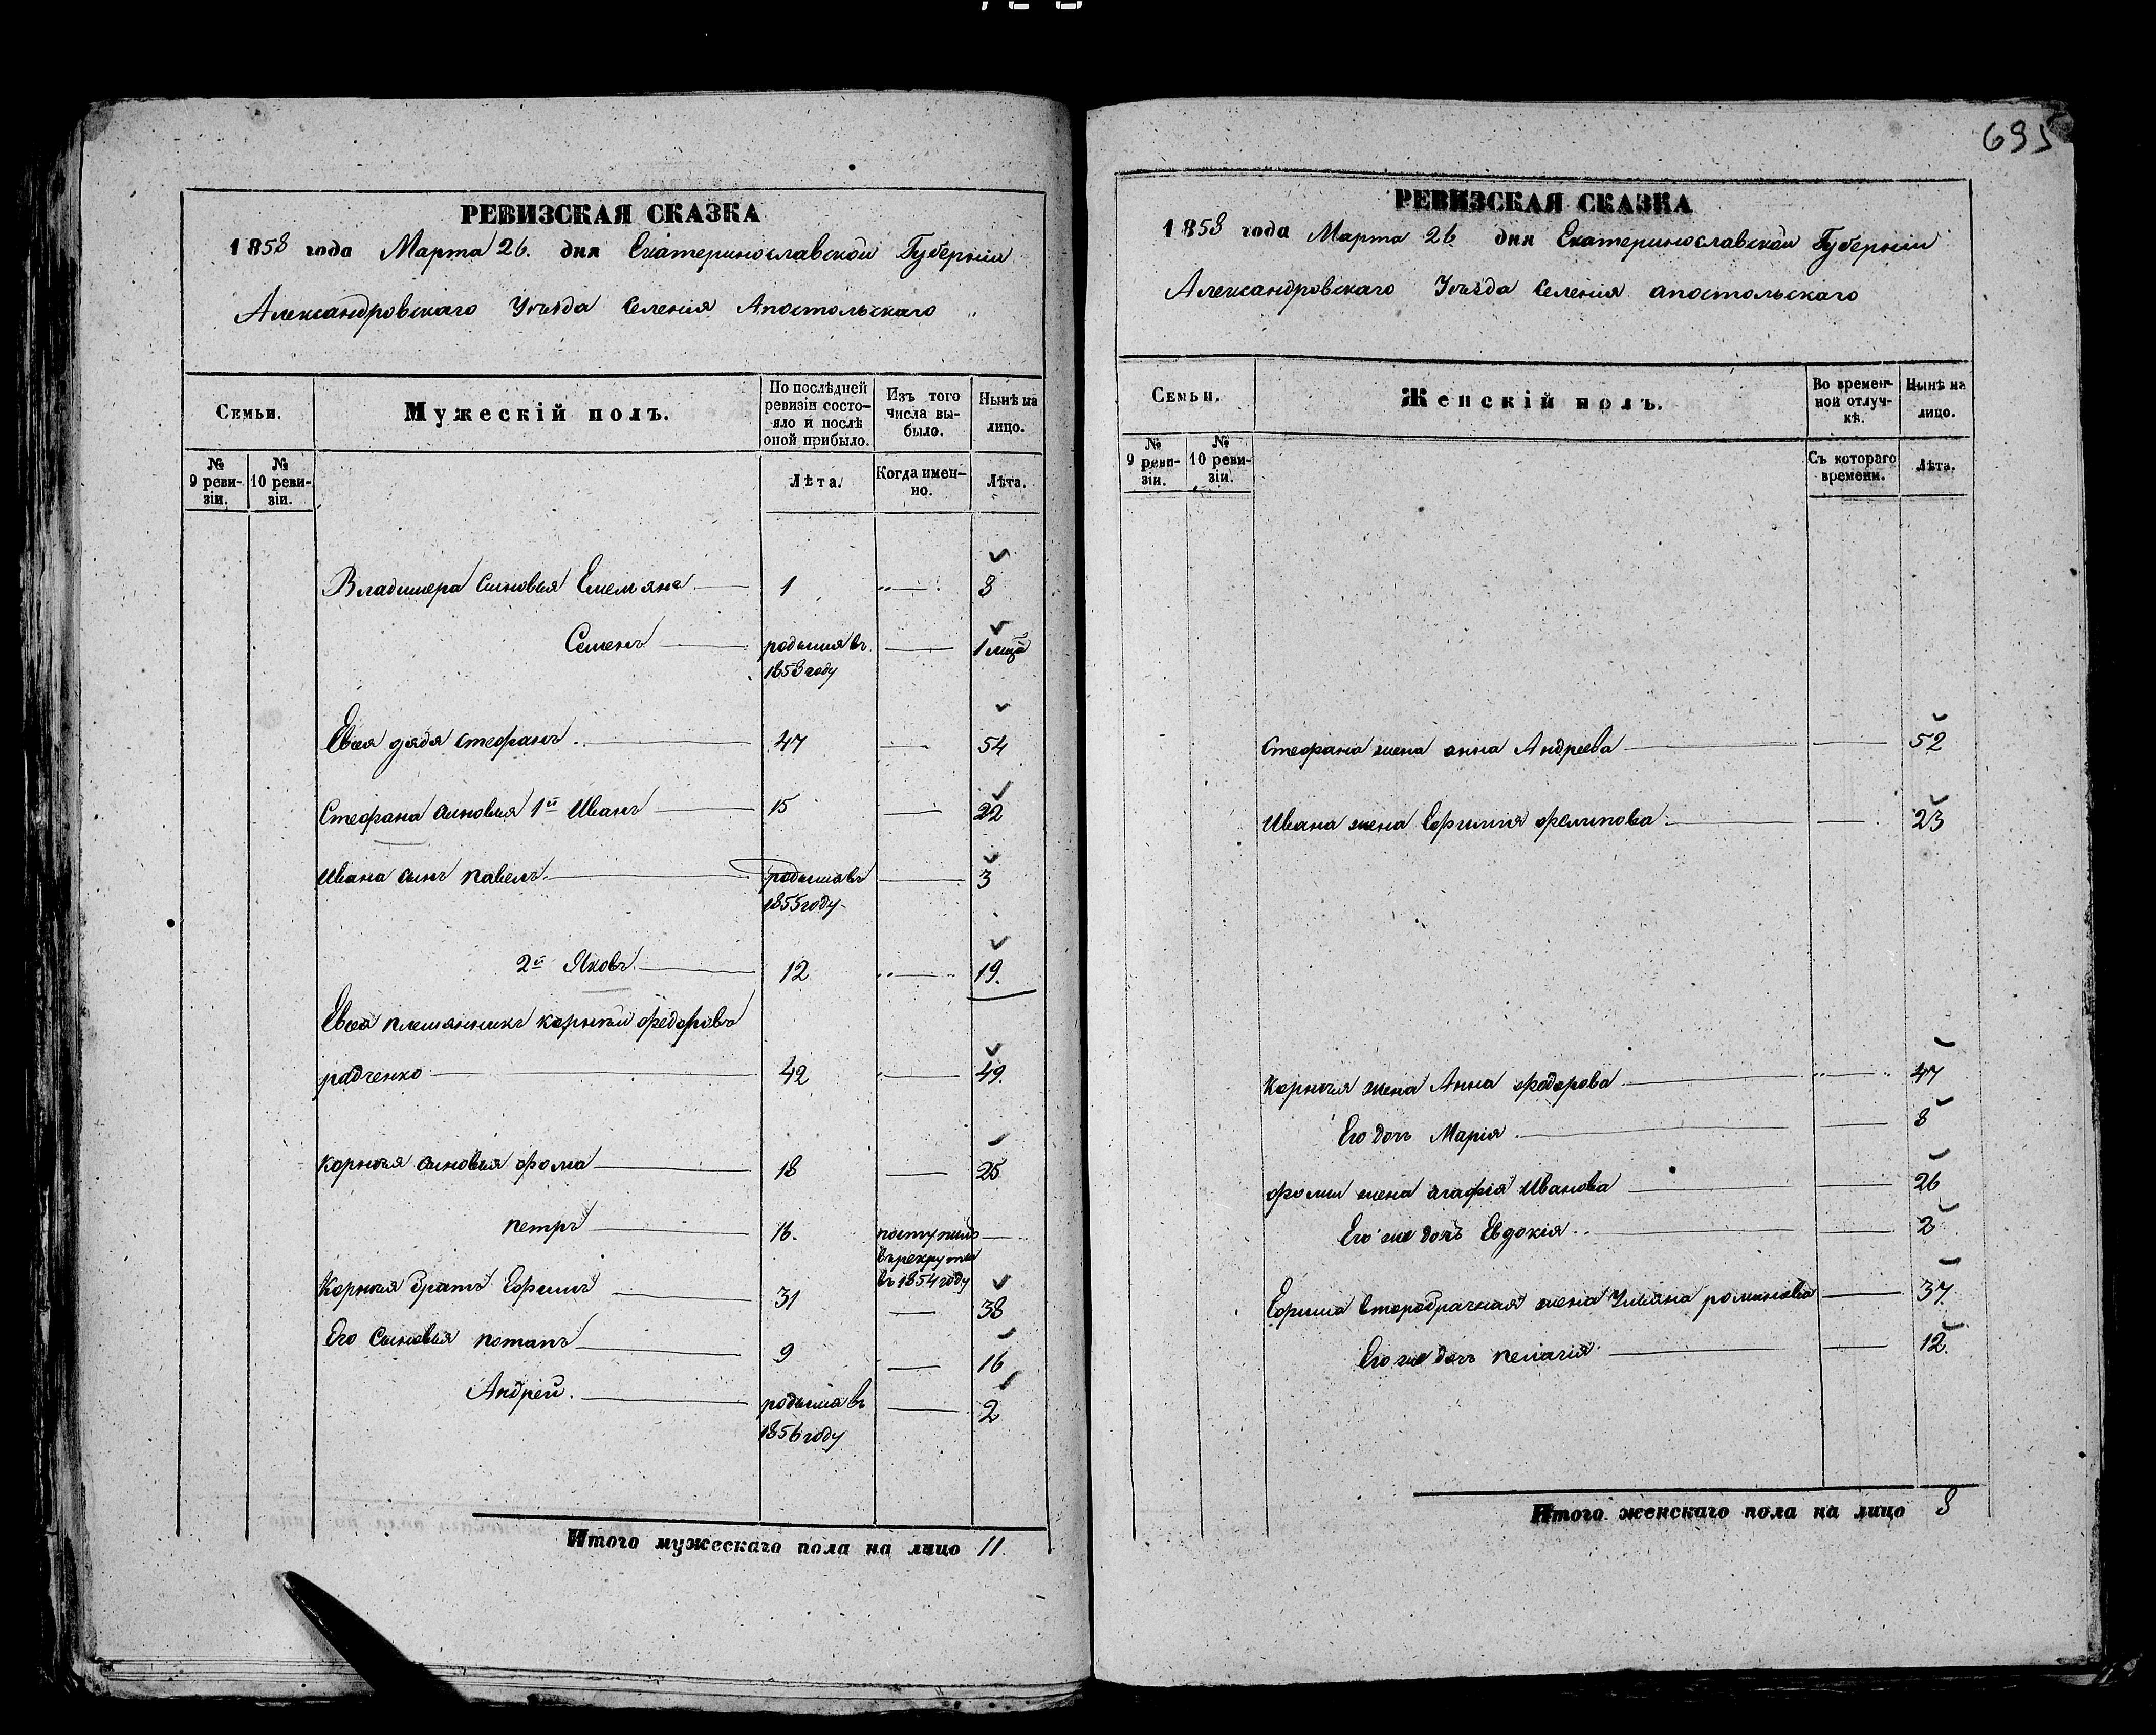 695
РЕВИЗСКАЯ СКАЗКА
1858 года Марта 26. дня Екатеринославской Губерніи
Александровскаго Уѣзда Селенія Апостольскаго
Семьи.
Мужескій полъ.
По послѣдней ревизіи состо-
яло и послѣ
оной прибыло.
Изъ того
числа вы-
было.
Нынѣ на
лицо.
№
9 реви-
зіи.
№
10 реви-
зіи.
Лѣта.
Когда имен-
но.
Лѣта.
Владимера сыновья Емельянъ 1 8
Семенъ родился въ 1 мця
1858 году
Евсея дядя Стефанъ. 47 54
Стефана сыновья 1й Иванъ 15 22
Ивана сынъ Павелъ. родился въ 3
1855 году
2й Яковъ. 12 19.
Евсея племянникъ корнѣй федоровъ
радченко 42 49.
корнѣя сыновья фома 18 25
петръ 16. поступилъ
въ рекруты
въ 1854 году
Корнѣя братъ Ефимъ 31 38
Его сыновья потапъ 9 16
Андрей. родился въ 2
1856 году
Итого мужескаго пола на лицо 11
РЕВИЗСКАЯ СКАЗКА
1858 года Марта 26 дня Екатеринославской Губерніи
Александровскаго Уѣзда Селенія апостольскаго
Семьи.
Женскій полъ.
Во времен-
ной отлуч-
кѣ.
Нынѣ на
лицо.
№
9 реви-
зіи.
№
10 реви-
зіи.
Съ котораго
времени.
Лѣта.
Стефана жена анна Андреева 52
Ивана жена Ефимия филипова 23
Корнѣя жена Анна федорова 47
Его дочь Марія 8
фомы жена агафія Иванова 26
Его же дочь Евдокія 2
Ефима второбрачная жена Ульяна романова 37
Его же дочь пелагія 12.
Итого женскаго пола на лицо 8